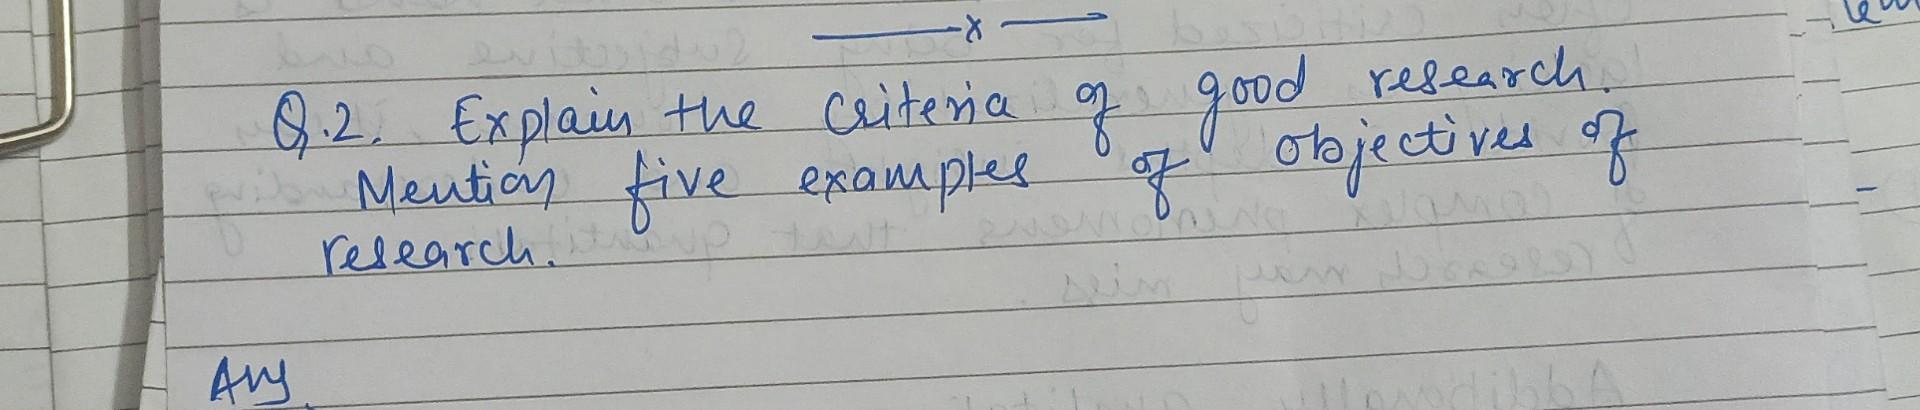 x
Q.2. Explain the criteria of good research.
Mention five examples of objectives of
research.
Ans.